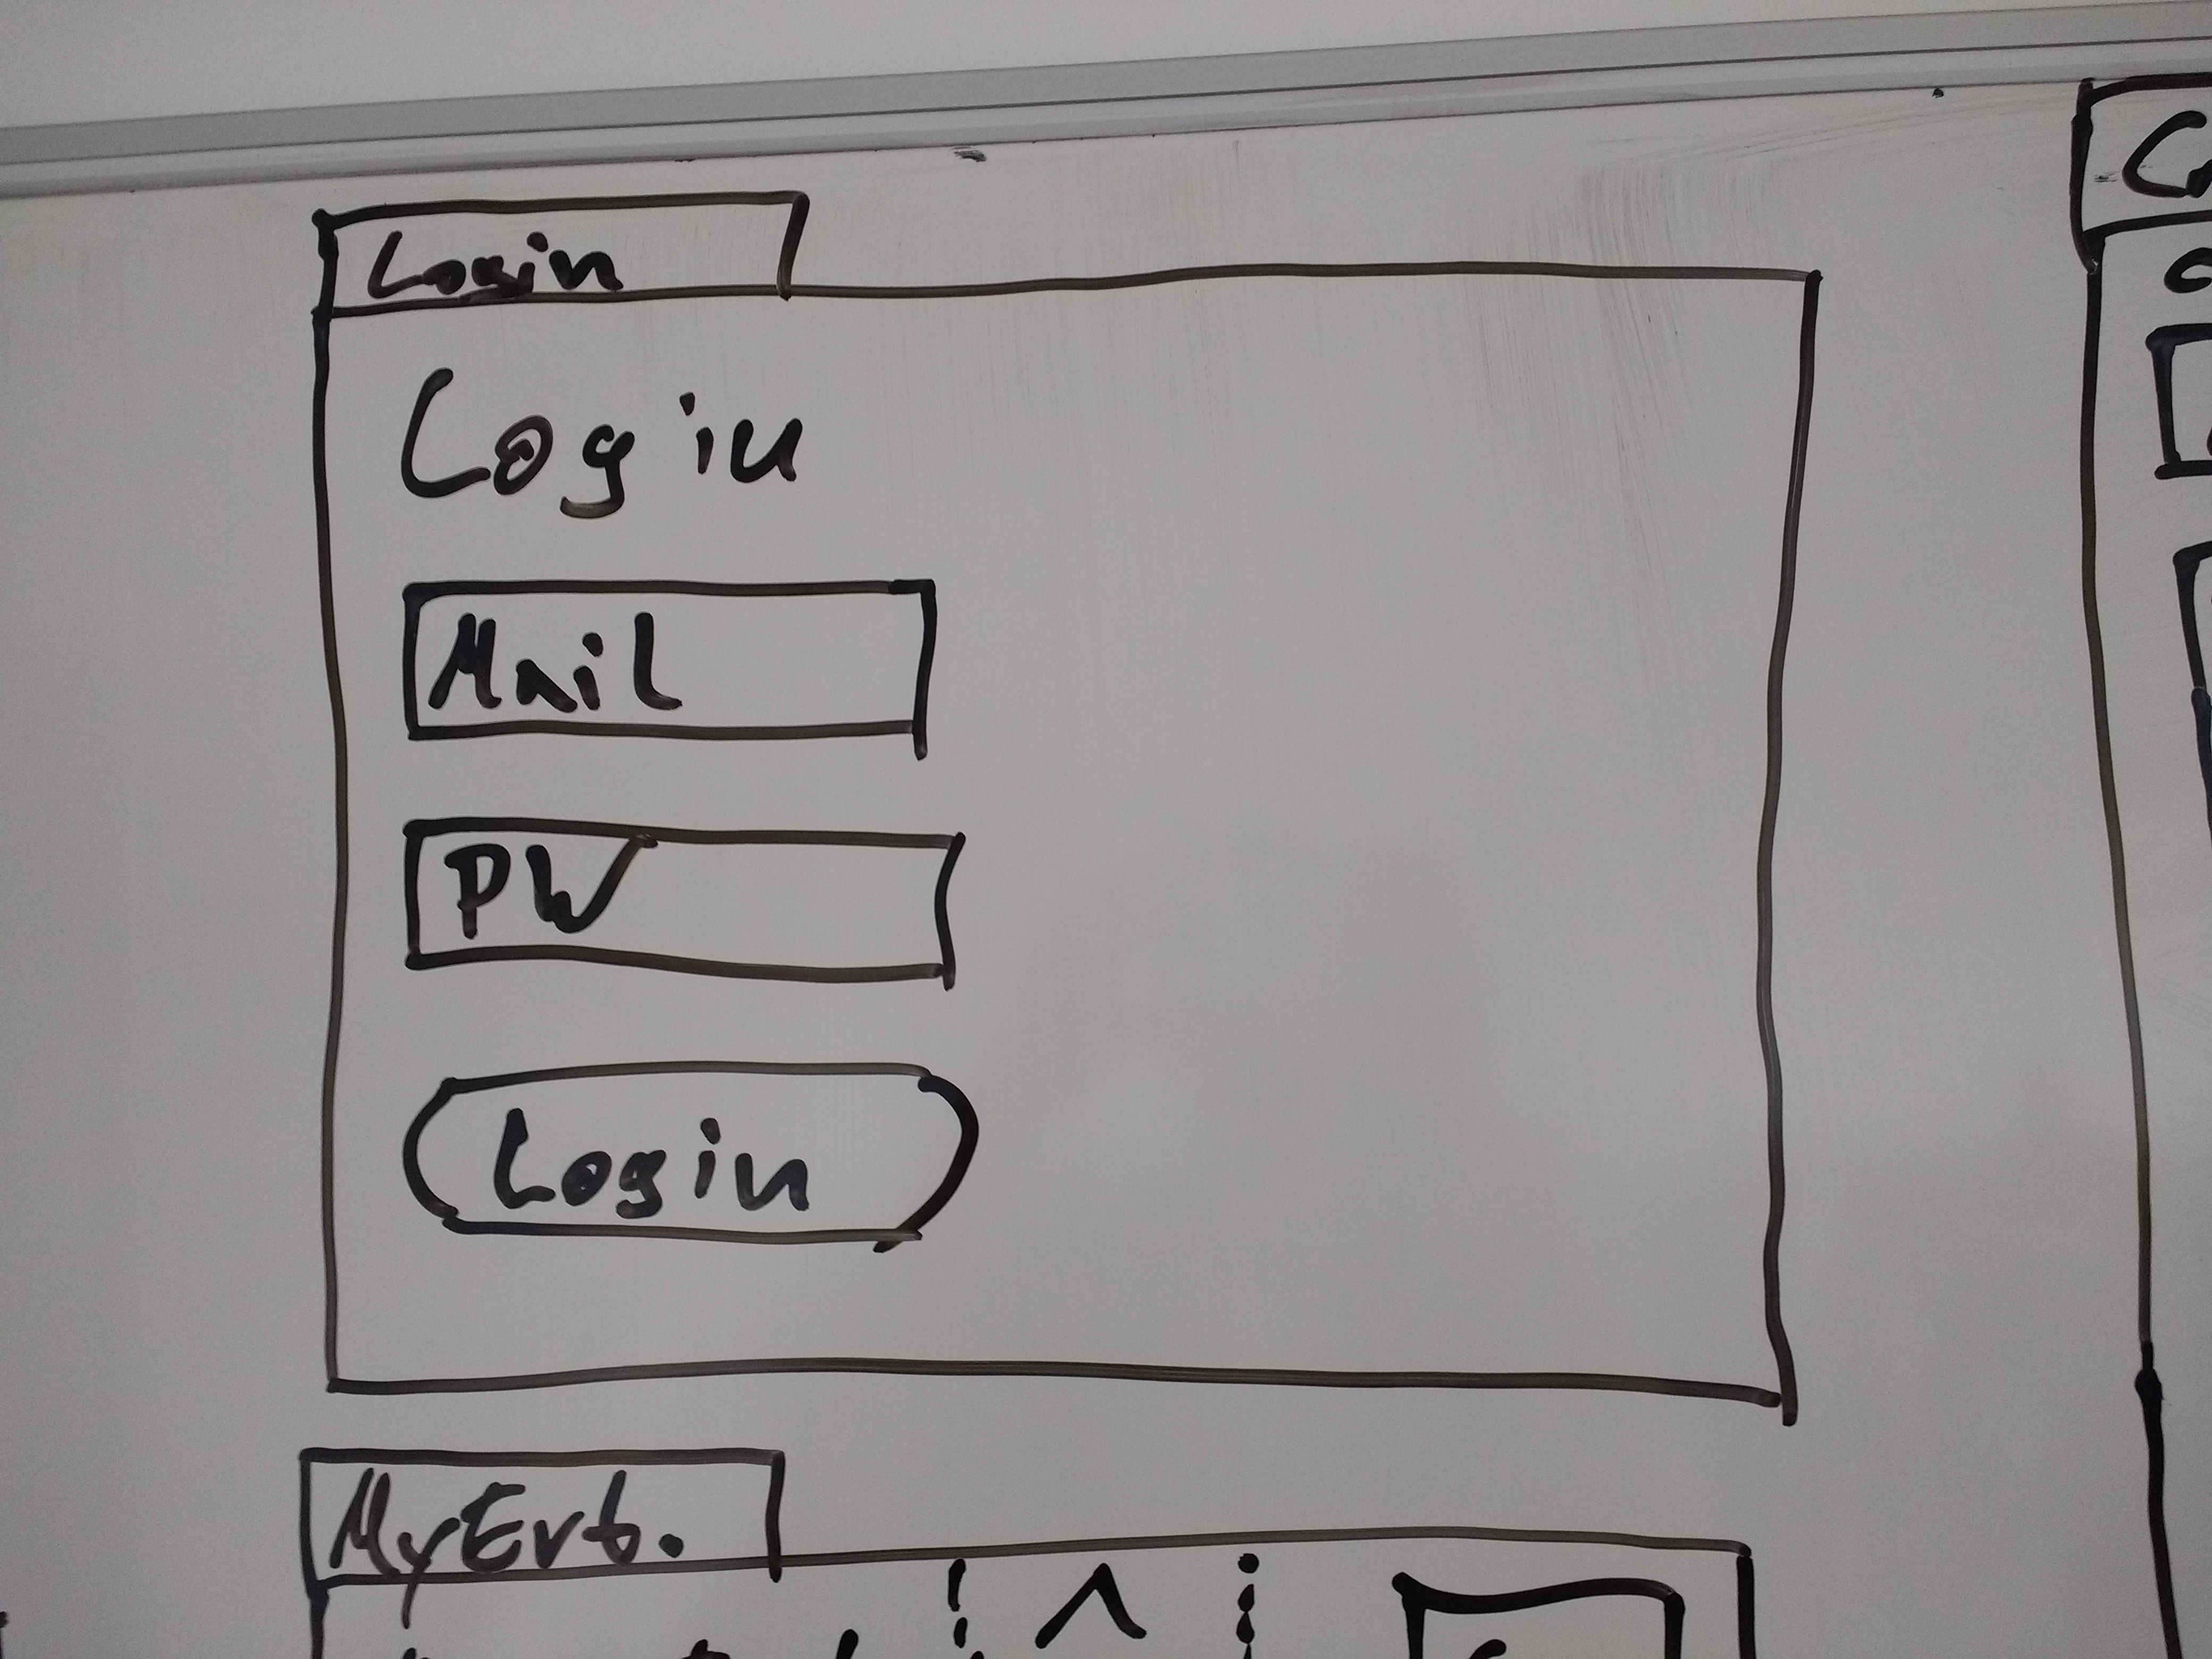 Login
Login
Mail
PW
Login
MyEvt.